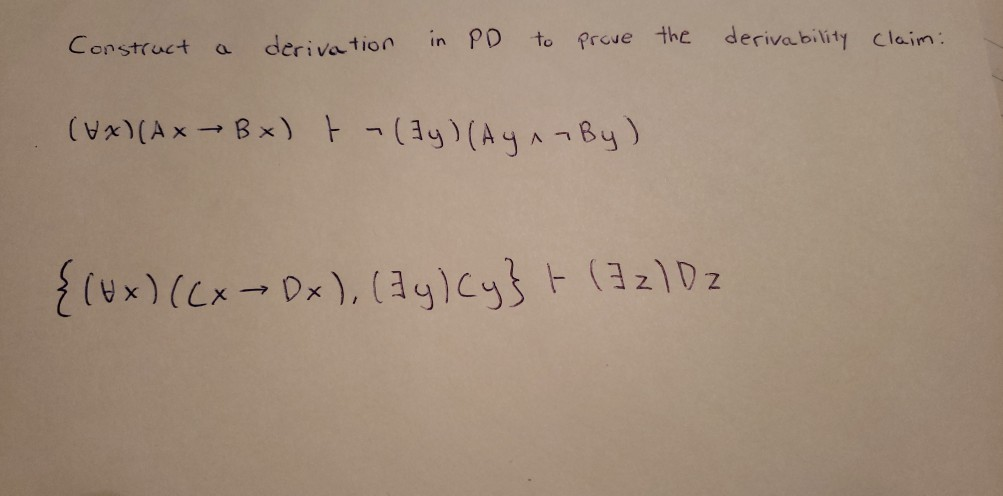 Construct a derivation in PD to prove the derivability claim:
(∀x)(Ax → Bx) ⊢ ¬(∃y)(Ay ∧ ¬By)
{(∀x)(Cx → Dx), (∃y)Cy} ⊢ (∃z)Dz